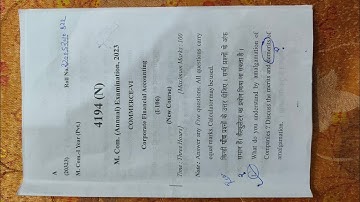 A
(20323)
Roll No.
M. Com.-I Year (Pvt.)
4194 (N)
M. Com. (Annual) Examination, 2023
COMMERCE-VI
Corporate Financial Accounting
(F-106)
(New Course)
Time : Three Hours] [Maximum Marks : 100
Note : Answer any five questions. All questions carry
equal marks. Calculator may be used.
किन्हीं पाँच प्रश्नों के उत्तर दीजिए। सभी प्रश्नों के अंक
समान हैं। कैलकुलेटर का प्रयोग किया जा सकता है।
What do you understand by amalgamation of
Companies ? Discuss the merits and demerits of
amalgamation.